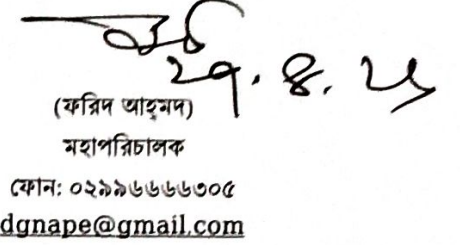 ২৭.৪.২৫
(ফরিদ আহমদ)
মহাপরিচালক
ফোন: ০২৯৯৬৬৬৬৩০৫
dgnape@gmail.com